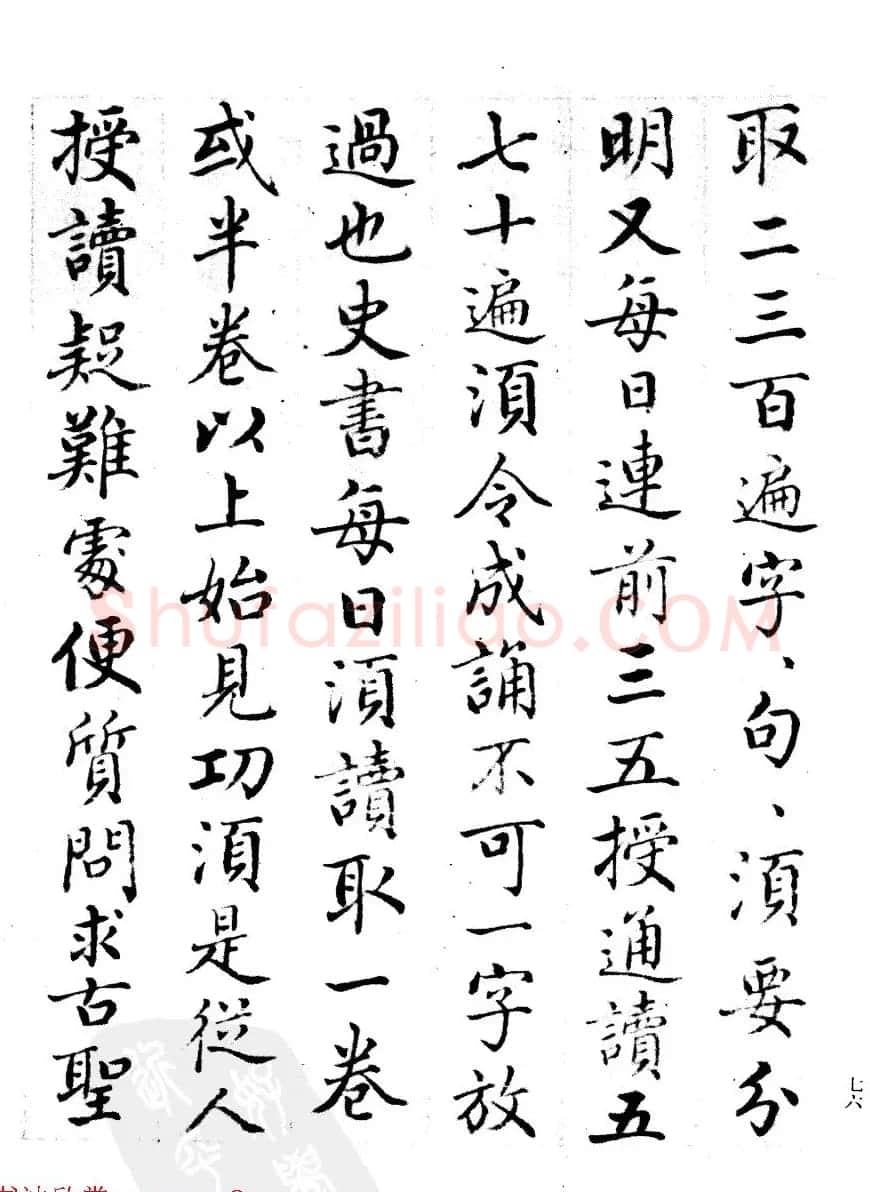 取二三百遍字、句、須要分
明又每日連前三五授通讀五
七十遍須令成誦不可一字放
過也史書每日須讀取一卷
或半卷以上始見功須是從人
授讀疑難處便質問求古聖
七六
Shufaziliao.COM